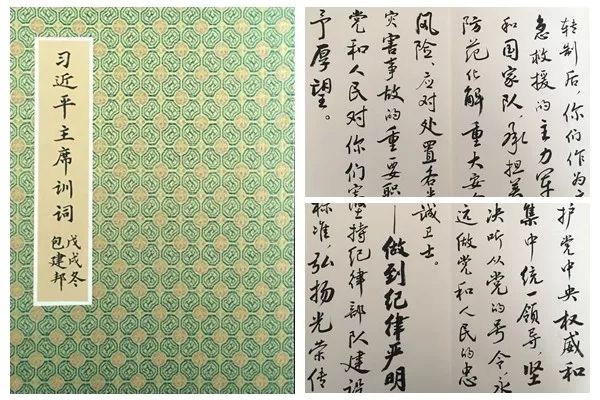 习近平主席训词
戊戌冬
包建邦
转制后，你们作为
急救援的主力军
和国家队，承担着
防范化解重大安
风险、应对处置各
灾害事故的重要职
党和人民对你们
予厚望。
护党中央权威和
集中统一领导，坚
决听从党的号令，永
远做党和人民的忠
诚卫士。
—做到纪律严明
坚持纪律部队建设
标准，弘扬光荣传